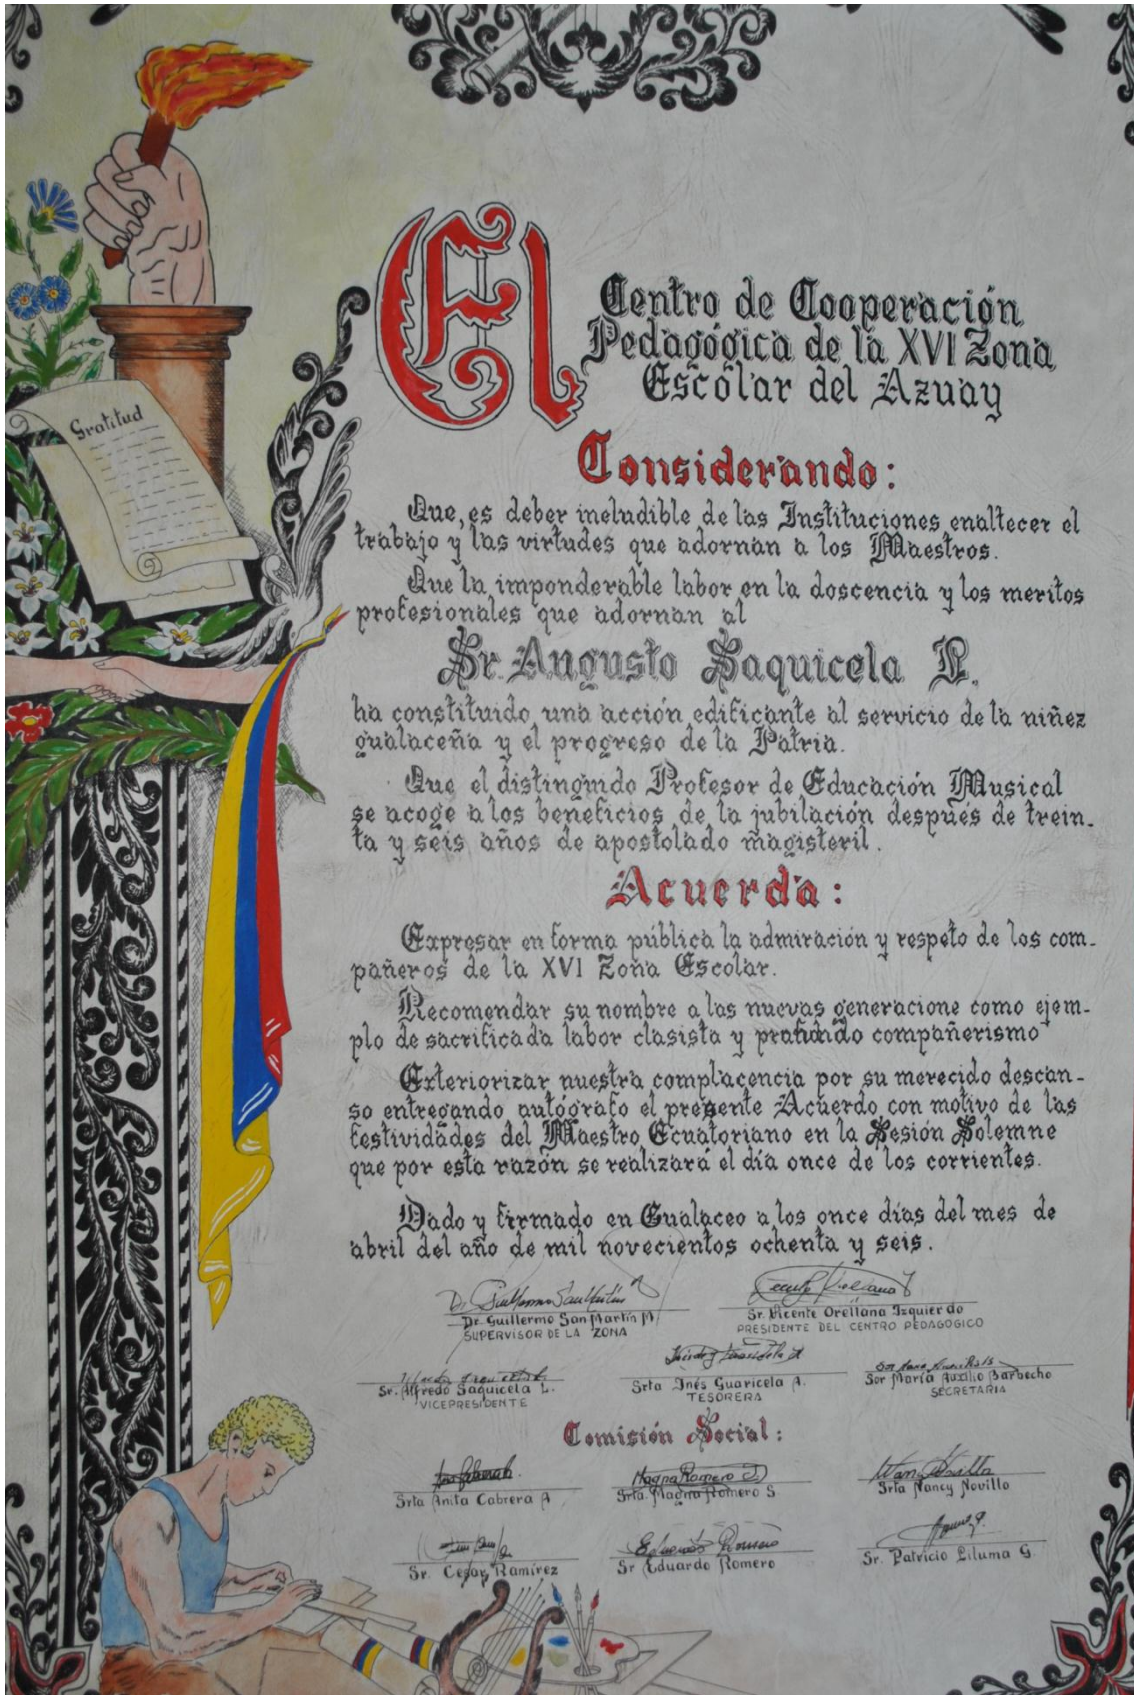 Gratitud
El Centro de Cooperación
Pedagógica de la XVI Zona
Escolar del Azuay
Considerando:
Que, es deber ineludible de las Instituciones enaltecer el
trabajo y las virtudes que adornan a los Maestros.
Que la imponderable labor en la doscencia y los meritos
profesionales que adornan al
Sr. Augusto Saquicela L.
ha constituido una acción edificante al servicio de la niñez
gualaceña y el progreso de la Patria.
Que el distinguido Profesor de Educación Musical
se acoge a los beneficios de la jubilación después de trein-
ta y seis años de apostolado magisteril.
Acuerda:
Expresar en forma pública la admiración y respeto de los com-
pañeros de la XVI Zona Escolar.
Recomendar su nombre a las nuevas generacione como ejem-
plo de sacrificada labor clasista y profundo compañerismo
Exteriorizar nuestra complacencia por su merecido descan-
so entregando autógrafo el presente Acuerdo con motivo de las
festividades del Maestro Ecuatoriano en la Sesión Solemne
que por esta razón se realizará el día once de los corrientes.
Dado y firmado en Gualaceo a los once días del mes de
abril del año de mil novecientos ochenta y seis.
Dr. Guillermo San Martín M
Dr. Guillermo San Martín M
SUPERVISOR DE LA ZONA
Sr. Vicente Orellana Izquierdo
PRESIDENTE DEL CENTRO PEDAGOGICO
Sr. Alfredo Saquicela L.
VICEPRESIDENTE
Srta Inés Guaricela A.
TESORERA
Sor María Auxilio Barbecho
SECRETARIA
Comisión Social:
Srta Anita Cabrera A
Magna Romero S
Srta. Magna Romero S
Srta Nancy Novillo
Sr. Cesar Ramírez
Eduardo Romero
Sr Eduardo Romero
Sr. Patricio Liluma G.